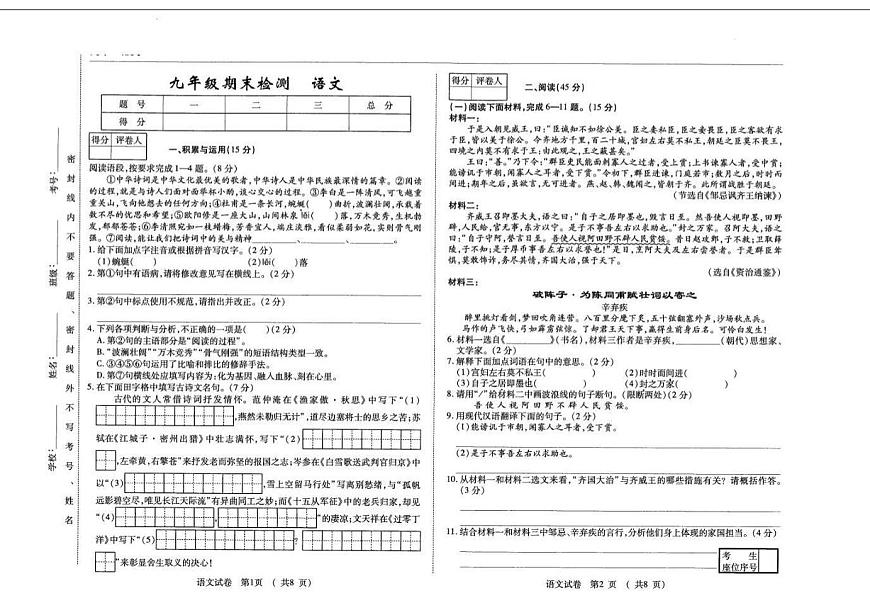 九年级期末检测 语文
题 号 一 二 三 总 分
得 分
得分 评卷人
一、积累与运用(15分)
阅读语段,按要求完成1—4题。(8分)
①中华诗词是中华文化最优美的歌者,中华诗人是中华民族最深情的篇章。②阅读
的过程,就是与诗人们面对面举杯小酌,谈心交心的过程。③李白是一阵清风,可飞越重
重关山,飞向他想去的任何方向;④杜甫是一条长河,蜿蜒( )曲折,波澜壮阔,承载着
数不尽的忧思和希望;⑤欧阳修是一座大山,山间林泉lòi( )落,万木竞秀,生机勃
发,郁郁苍苍;⑥李清照宛如一枝蜡梅,芳香宜人,端庄淡雅,看似柔弱如花,实则骨气刚
强。⑦阅读,能让我们把诗词中的美与精神 、 、 。
1.给下面加点字注音或根据拼音写汉字。(2分)
(1)蜿蜒( ) (2)lòi( )落
2.第①句中有语病,请将修改意见写在横线上。(2分)
3.第②句中标点使用不规范,请指出并改正。(2分)
4.下列各项判断与分析,不正确的一项是( )(2分)
A.第②句的主语部分是“阅读的过程”。
B.“波澜壮阔”“万木竞秀”“骨气刚强”的短语结构类型一致。
C.③④⑤⑥句运用了比喻和排比的修辞手法。
D.第⑦句横线处应填写内容为:化为基因、融入血脉、刻在心里。
5.在下面田字格中填写古诗文名句。(7分)
古代的文人常借诗词抒发情怀。范仲淹在《渔家傲·秋思》中写下“(1)
,燕然未勒归无计”,道尽边塞将士的思乡之苦;苏
轼在《江城子·密州出猎》中壮志满怀,写下“(2)
,左牵黄,右擎苍”来抒发老而弥坚的报国之志;岑参在《白雪歌送武判官归京》中
以“(3) ,雪上空留马行处”写离别愁绪,与“孤帆
远影碧空尽,唯见长江天际流”有异曲同工之妙;而《十五从军征》中的老兵归家,却见
“(4) , ”的凄凉;文天祥在《过零丁
洋》中写下“(5) ?
”来彰显舍生取义的决心!
语文试卷 第1页 (共8页)
学校: 姓名: 班级: 考号:
密封线内不要答题、密封线外不写考号、姓名
得分 评卷人
二、阅读(45分)
(一)阅读下面材料,完成6—11题。(15分)
材料一:
于是入朝见威王,曰:“臣诚知不如徐公美。臣之妻私臣,臣之妾畏臣,臣之客欲有求
于臣,皆以美于徐公。今齐地方千里,百二十城,宫妇左右莫不私王,朝廷之臣莫不畏王,
四境之内莫不有求于王:由此观之,王之蔽甚矣。”
王曰:“善。”乃下令:“群臣吏民能面刺寡人之过者,受上赏;上书谏寡人者,受中赏;
能谤讥于市朝,闻寡人之耳者,受下赏。”令初下,群臣进谏,门庭若市;数月之后,时时而
间进;期年之后,虽欲言,无可进者。燕、赵、韩、魏闻之,皆朝于齐。此所谓战胜于朝廷。
(节选自《邹忌讽齐王纳谏》)
材料二:
齐威王召即墨大夫,语之曰:“自子之居即墨也,毁言日至。然吾使人视即墨,田野
辟,人民给,官无事,东方以宁。是子不事吾左右以求助也。”封之万家。召阿大夫,语之
曰:“自子守阿,誉言日至。吾使人视阿田野不辟人民贫馁。昔日赵攻鄄,子不救;卫取薛
陵,子不知;是子厚币事吾左右以求誉也!”是日,烹阿大夫及左右尝誉者。于是群臣耸
惧,莫敢饰诈,务尽其情,齐国大治,强于天下。
(选自《资治通鉴》)
材料三:
破阵子·为陈同甫赋壮词以寄之
辛弃疾
醉里挑灯看剑,梦回吹角连营。八百里分麾下炙,五十弦翻塞外声,沙场秋点兵。
马作的卢飞快,弓如霹雳弦惊。了却君王天下事,赢得生前身后名。可怜白发生!
6.材料一选自《 》(书名),材料三作者是辛弃疾, (朝代)思想家、
文学家。(2分)
7.解释下面加点词语在句中的意思。(2分)
(1)宫妇左右莫不私王( ) (2)时时而间进( )
(3)自子之居即墨也( ) (4)封之万家( )
8.请用“/”给材料二中画波浪线的句子断句。(限断两处)(2分)
吾 使 人 视 阿 田 野 不 辟 人 民 贫 馁。
9.用现代汉语翻译下面的句子。(2分)
(1)能谤讥于市朝,闻寡人之耳者,受下赏。
(2)是子不事吾左右以求助也。
10.从材料一和材料二选文来看,“齐国大治”与齐威王的哪些措施有关?请概括作答。
(3分)
11.结合材料一和材料三中邹忌、辛弃疾的言行,分析他们身上体现的家国担当。(4分)
考 生
座位序号
语文试卷 第2页 (共8页)